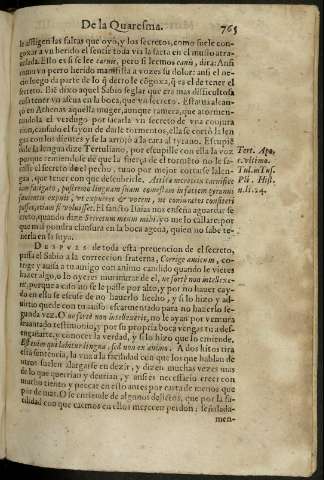 De la Quaresma. 765
le afligen las faltas que oyó, y los secretos, como suele con-
goxar a vn herido el sentir toda via la saeta en el muslo atra-
uesada. Ello es si se lee carnis, pero si leemos canis, dira: Ansi
como vn perro herido manifiesta a vozes su dolor: ansi el ne-
cio luego da parte de lo que le cõgoxa, que es el de tener el
secreto. Biẽ dixo aquel Sabio seglar que era mas dificultosa
cosa tener vn ascua en la boca, que vn secreto. Esta ua alcan-
çó en Athenas aquella muger, aunque ramera, que atormen-
tandola el verdugo por sacarla vn secreto de vna conjura
cion, cansado el sayon de darle tormentos, ella se cortó la len
gua con los dientes y se la arrojó a la cara al tyrano. Escupió
dize la lengua dize Tertuliano, por escupille con ella la voz
porque temiendose de que la fuerça de el tormẽto no le sa-
casse el secreto del pecho, tuuo por mejor cortarse la len-
gua, que tener con que descubrirle.
iam fatigato, postremo linguam suam comestam in faciem tyranni
sauientis expuit, vt expueret & vocem, ne coniuratos confiteri
posset, etiam si voluisset. El sancto Isaias nos enseña aguardar se
creto, quando dize Secretum meum mihi, yo me lo callaré, por
que mal pondra clausura en la boca agena, quien no sabe te-
nerla en la suya.
DESPVES de toda esta preuencion de el secreto,
passa el Sabio a la correccion fraterna, Corrige amicum, cor-
rige y auisa a tu amigo con animo candido quando le vieres
hazer algo, o lo oyeres murmurar de el, ne fortè non intellexe-
rit, porque a caso no se le passe por alto, y por no hauer cay-
do en ella se escuse de no hauerlo hecho, y si lo hizo y ad-
uirtio quede con tu auiso escarmentado para no hazerlo se-
gunda vez. O ne fortè non intellexerit, no le ayan por ventura
leuantado testimonio, y por su propria boca vengas tu a des-
engañarte, y conocer la verdad, y si lo hizo que lo emiende.
Est enim qui labitur lingua, sed non ex animo. A dos hitos tira
esta sentencia, la vna a la facilidad con que los que hablan de
otros suelen alargarse en dezir, y dizen muchas vezes mas
de lo que querrian y deurian, y ansi es necessario creer con
mucho tiento y pecar en esto antes por carta de menos que
por de mas. O se entiende de algunos delictos, que por la fa-
cilidad con que caemos en ellos merecen perdon: señalada-
men-
Tert. Apo.
c. vltimo.
Pli. Hist.